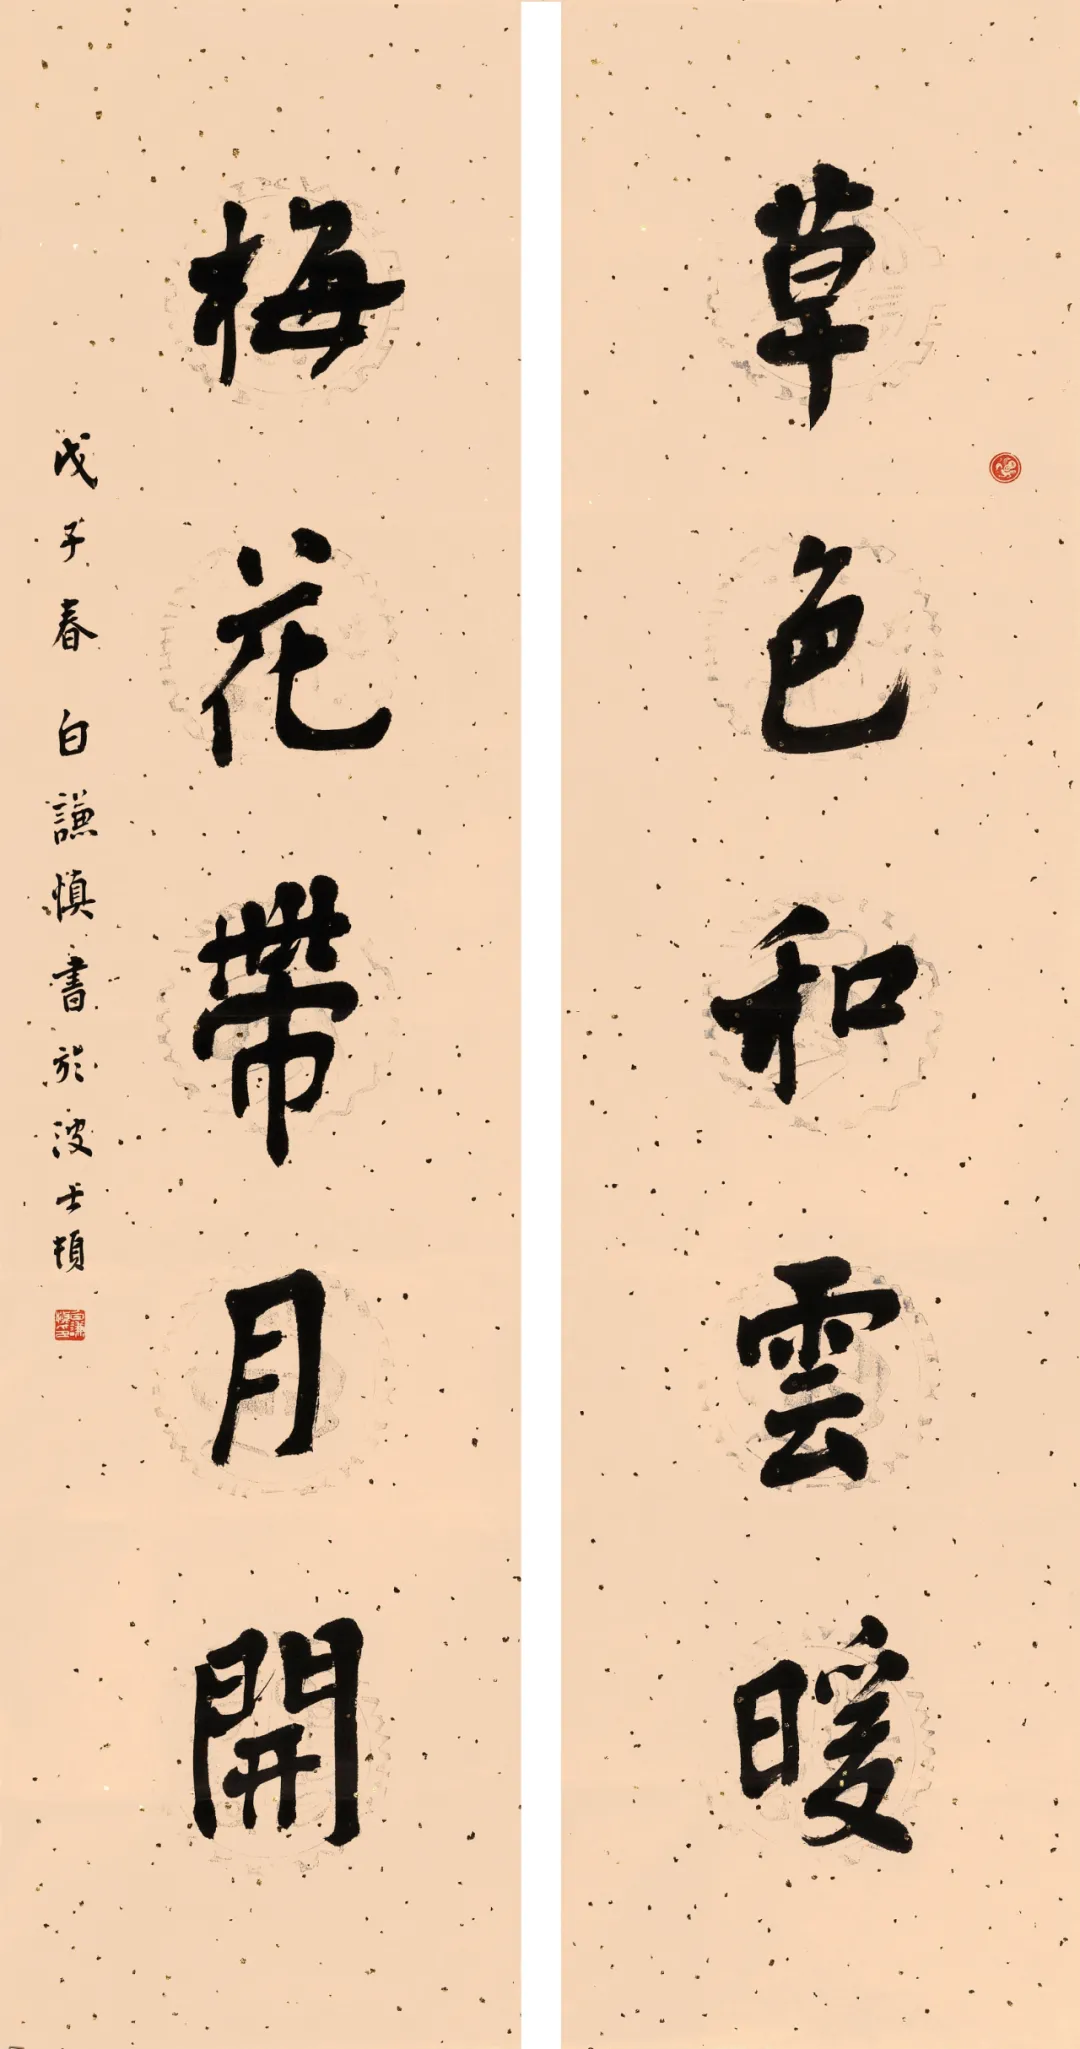 草色和雲暖
梅花帶月開
戊子春 白謙慎書於波士頓